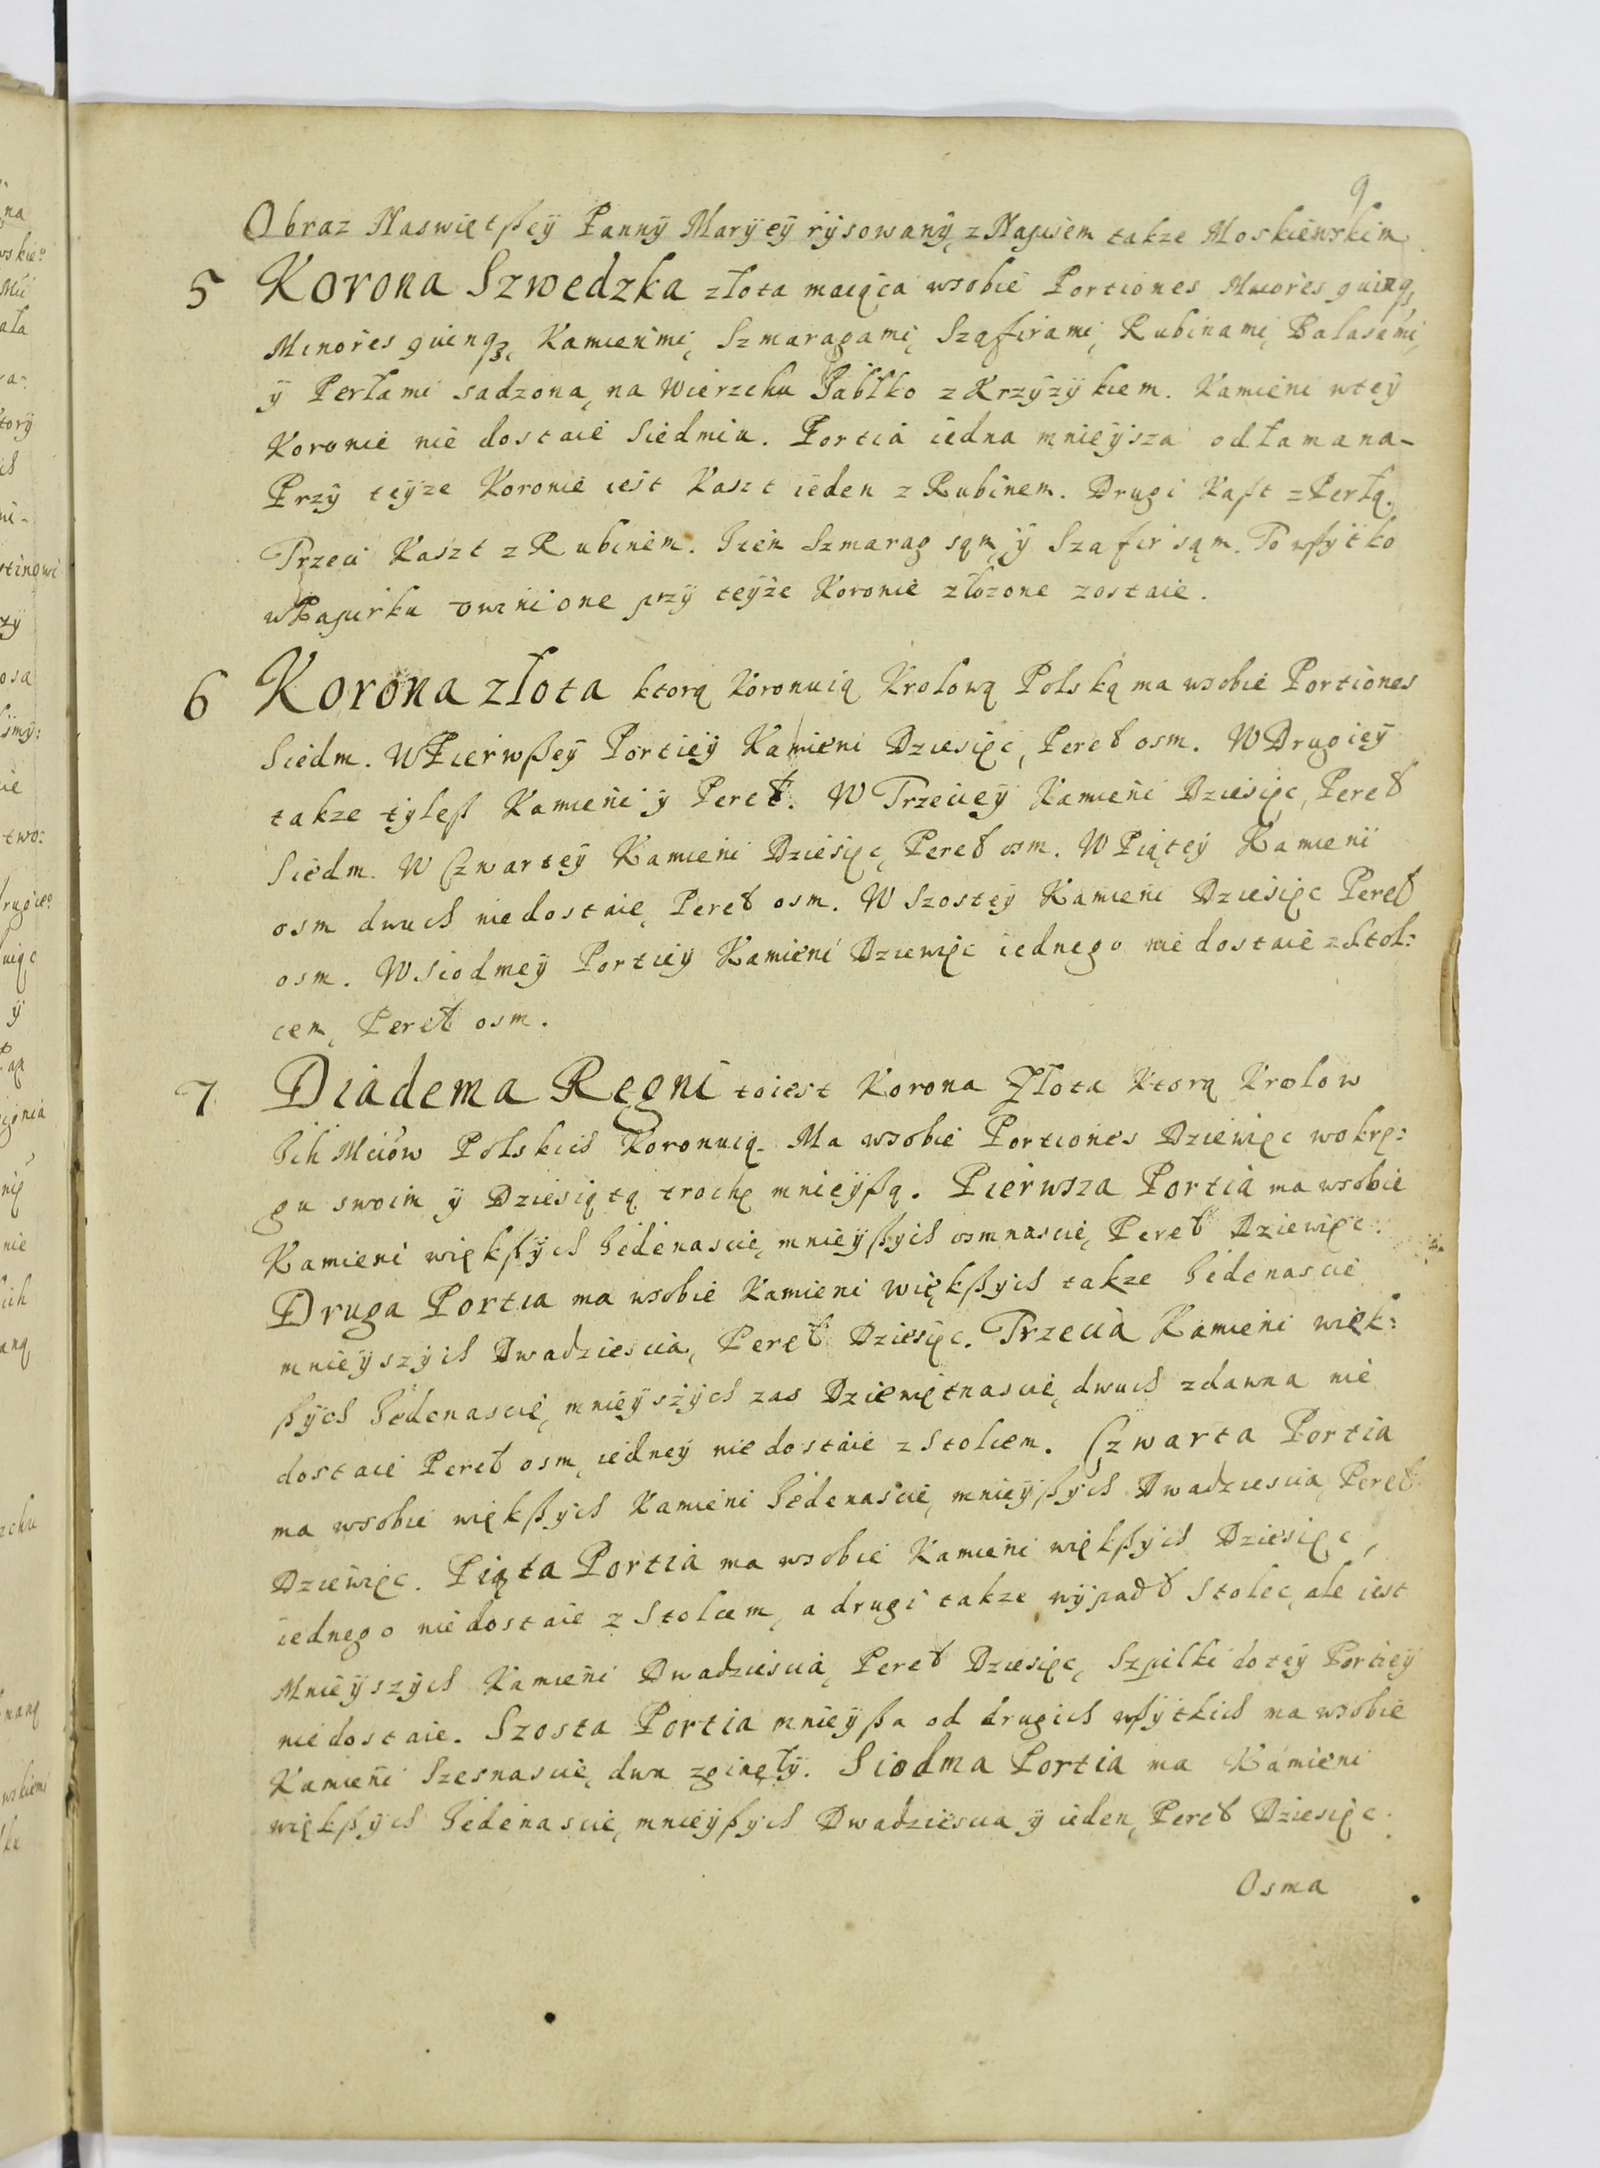 9
Obraz Naswiętßeÿ Pannÿ Marÿeÿ rÿsowanÿ, z Napisem takze Moskiewskim
5 Korona Szwedzka złota maiąca wsobie Portiones Maiores quinqȝ
Minores quinqȝ, Kamieńmi, Szmaragami, Szafirami, Rubinami, Balasami,
ÿ Perłami sadzona, na Wierzchu Jabłko z Krzÿzÿkiem. Kamieni wteÿ
Koronie nie dostaie Siedmiu. Portia iedna mnieÿsza odłamana-
Przÿ teÿze Koronie iest Kaszt ieden z Rubinem. Drugi Kaszt z Perłą.
Trzeci Kaszt z Rubinem. Szmarag sąm, ÿ Szafir sąm. To wßÿtko
wPapirku zwinione przÿ teÿże Koronie złozone zostaie.
6 Korona złota ktorą Koronuią Krolową Polską ma wsobie Portiones
Siedm. WPierwßeÿ Portieÿ Kamieni Dziesięc, Pereł osm. WDrugieÿ
takze tÿleß Kamieni ÿ Pereł. W Trzecieÿ Kamieni Dziesięc, Pereł
Siedm. W Czwarteÿ Kamieni Dziesięc, Pereł osm. WPiąteÿ Kamieni
osm dwuch niedostaie, Pereł osm. W Szosteÿ Kamieni Dziesięc Pereł
osm. WSiodmeÿ Portieÿ Kamieni Dziewięc iednego nie dostaie z Stol:
cem, Pereł osm.
7 Diadema Regni toiest Korona Złota Ktorą Krolow
Ich Mciow Polskich Koronuią. Ma wsobie Portiones Dziewięc wokrę:
gu swoim ÿ Dziesiątą trochę mnieÿßą. Pierwsza Portia ma wsobie
Kamieni więkßÿch Jedenascie, mnieÿßÿch osmnascie, Pereł Dziewięc.
Druga Portia ma wsobie Kamieni więkßÿch takze Jedenascie
mnieÿszÿch Dwadziescia, Pereł Dziesięc. Trzecia Kamieni więk:
ßÿch Jedenascie, mnieÿszÿch zas Dziewiętnascie, dwuch zdawna nie
dostaie Pereł osm, iedneÿ nie dostaie z Stolcem. Czwarta Portia
ma wsobie więkßÿch Kamieni Jedenascie, mnieÿßÿch Dwadziescia, Pereł
Dziewięc. Piąta Portia ma wsobie Kamieni więkßÿch Dziesięc,
iednego niedostaie z Stolcem, a drugi takze wÿpadł Stolec, ale iest
Mnieÿszÿch Kamieni Dwadziescia, Pereł Dziesięc, Szpilki doteÿ Portieÿ
niedostaie. Szosta Portia mnieÿßa od drugich wßÿtkich ma wsobie
Kamieni Szesnascie, dwa zginęłÿ. Siodma Portia ma Kamieni
więkßÿch Jedenascie, mnieÿßÿch Dwadziescia ÿ ieden, Pereł Dziesięc.
Osma